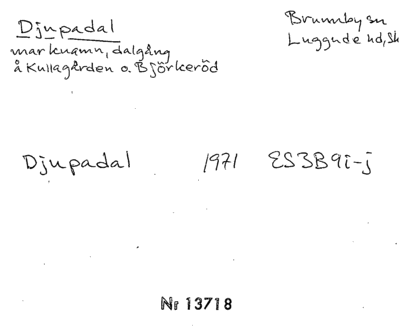 Djupadal
marknamn, dalgång
å Kullagården o. Björkeröd
Brunnby sn
Luggude hd, Sk
Djupadal 1971 ES3B9i-j
Nr 13718